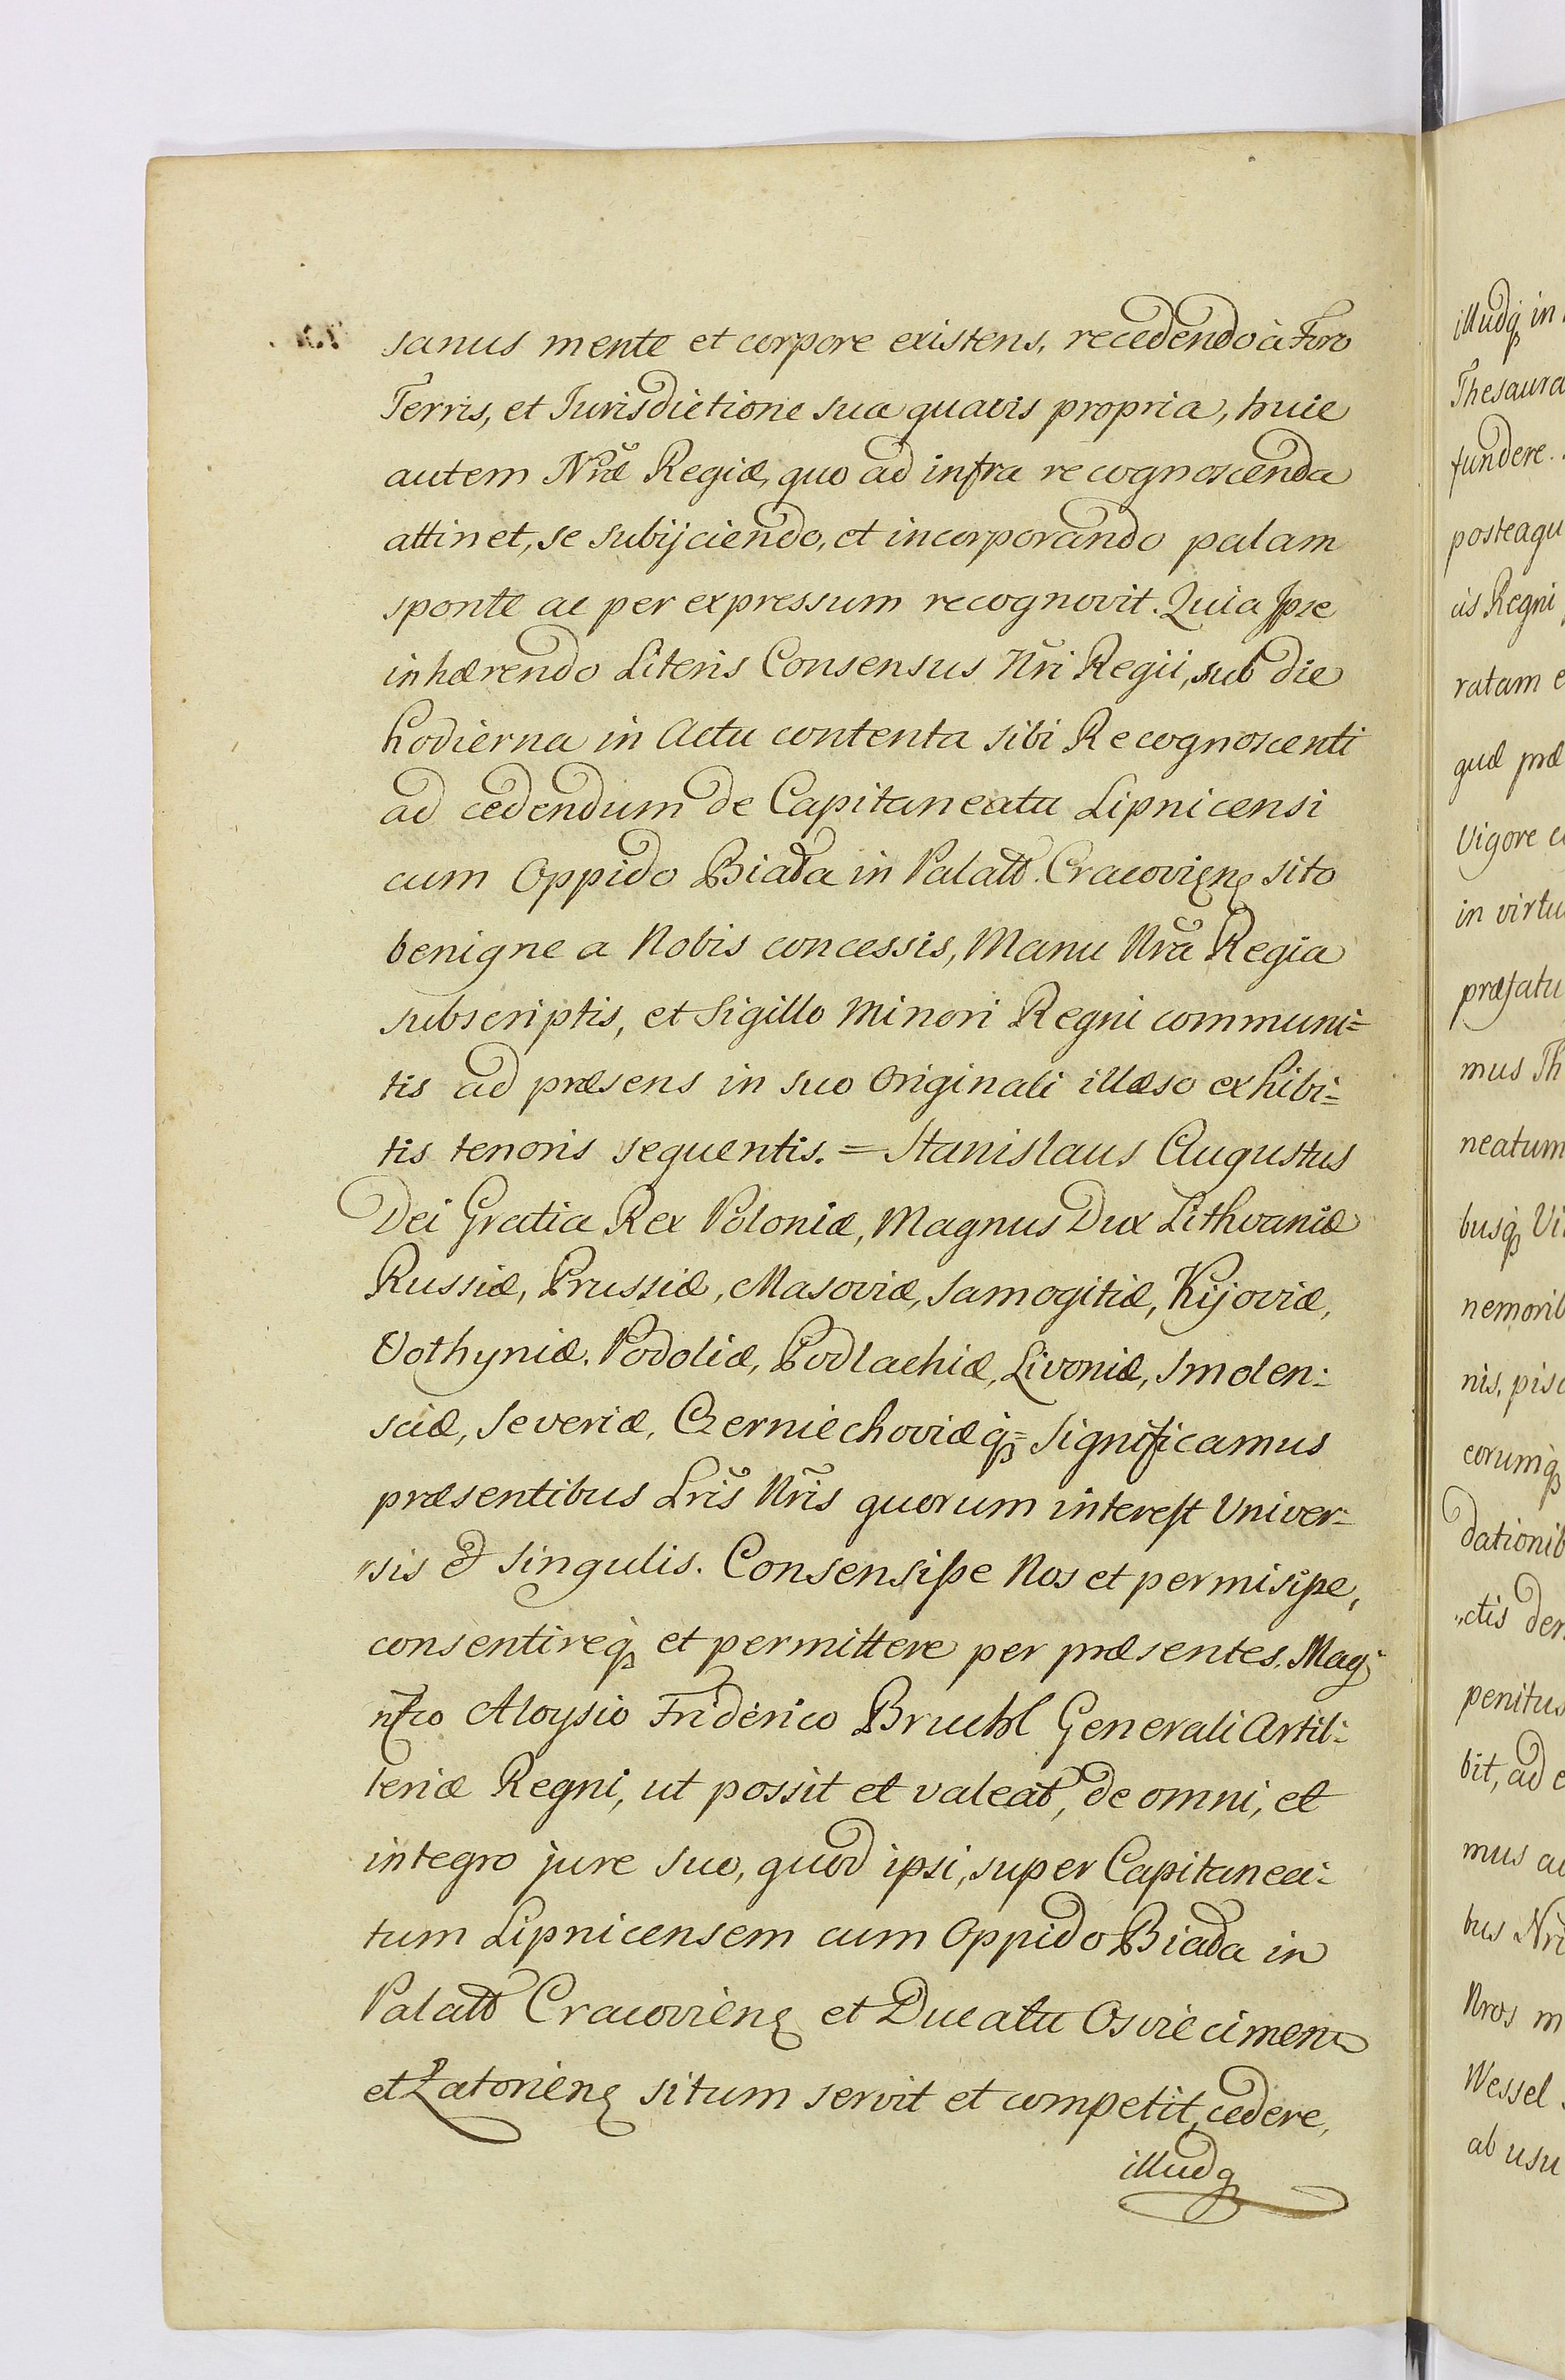 sanus mente et corpore existens, recedendo à Foro
Terris, et Jurisdictione sua quavis propria, huic
autem Nr̃æ Regiæ, quo ad infra recognoscenda
attinet, se subijciendo, et incorporando palam
sponte ac per expressum recognovit. Quia Ipse
inhærendo Literis Consensus Nr̃i Regii, sub die
hodierna in Actu contenta sibi Recognoscenti
ad cedendum de Capitaneatu Lipnicensi
cum Oppido Biała in Palattũ. Cracovieñ sito
benigne a Nobis concessis, Manu Nr̃a Regia
subscriptis, et Sigillo Minori Regni communi=
tis ad præsens in suo Originali illæso exhibi=
tis tenoris sequentis. = Stanislaus Augustus
Dei Gratia Rex Poloniæ, Magnus Dux Lithvaniæ
Russiæ, Prussiæ, Masoviæ, Samogitiæ, Kijoviæ,
Vołhyniæ, Podoliæ, Podlachiæ, Livoniæ, Smolen=
sciæ, Severiæ, Czerniechoviæq3= Significamus
præsentibus Lris̃ Nris̃ quorum interest Univer=
„sis & Singulis. Consensisse Nos et permisisse,
consentireq3 et permittere per præsentes. Mag=
nfco Aloysio Friderico Bruchl Generali Artil=
leriæ Regni, ut possit et valeat, de omni, et
integro jure suo, quod ipsi, super Capitanea=
tum Lipnicensem cum Oppido Biała in
Palattũ Cracovieñ et Ducatu Osviecimeñ
et Zatorieñ situm servit et competit, cedere,
illudq
illudq3 in
Thesaura
fundere.
posteaqu
cis Regni
ratam e
quæ præ
Vigore c
in virtu
præfatu
mus Th
neatum
busq3 Vi
nemorib
nis, pisc
eorumq3
dationib
„ctis der
penitus
bit, ad e
mus au
bus Nri
Nros m
Wessel
ab usu